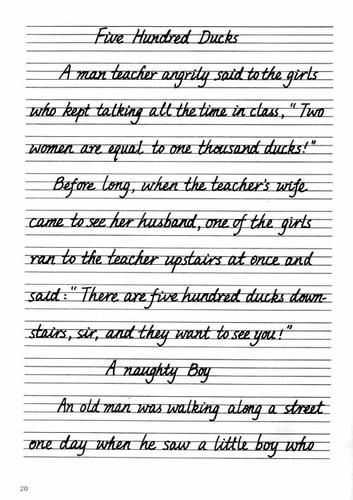 Five Hundred Ducks
A man teacher angrily said to the girls
who kept talking all the time in class, "Two
women are equal to one thousand ducks!"
Before long, when the teacher's wife
came to see her husband, one of the girls
ran to the teacher upstairs at once and
said: "There are five hundred ducks down-
stairs, sir, and they want to see you!"
A naughty Boy
An old man was walking along a street
one day when he saw a little boy who
20